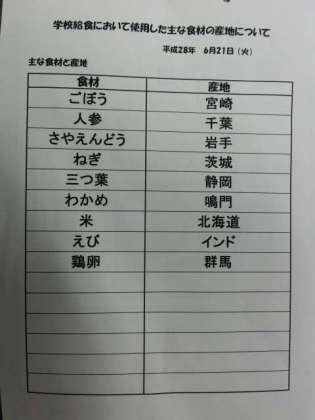 学校給食において使用した主な食材の産地について
平成28年 6月21日（火）
主な食材と産地
食材 産地
ごぼう 宮崎
人参 千葉
さやえんどう 岩手
ねぎ 茨城
三つ葉 静岡
わかめ 鳴門
米 北海道
えび インド
鶏卵 群馬